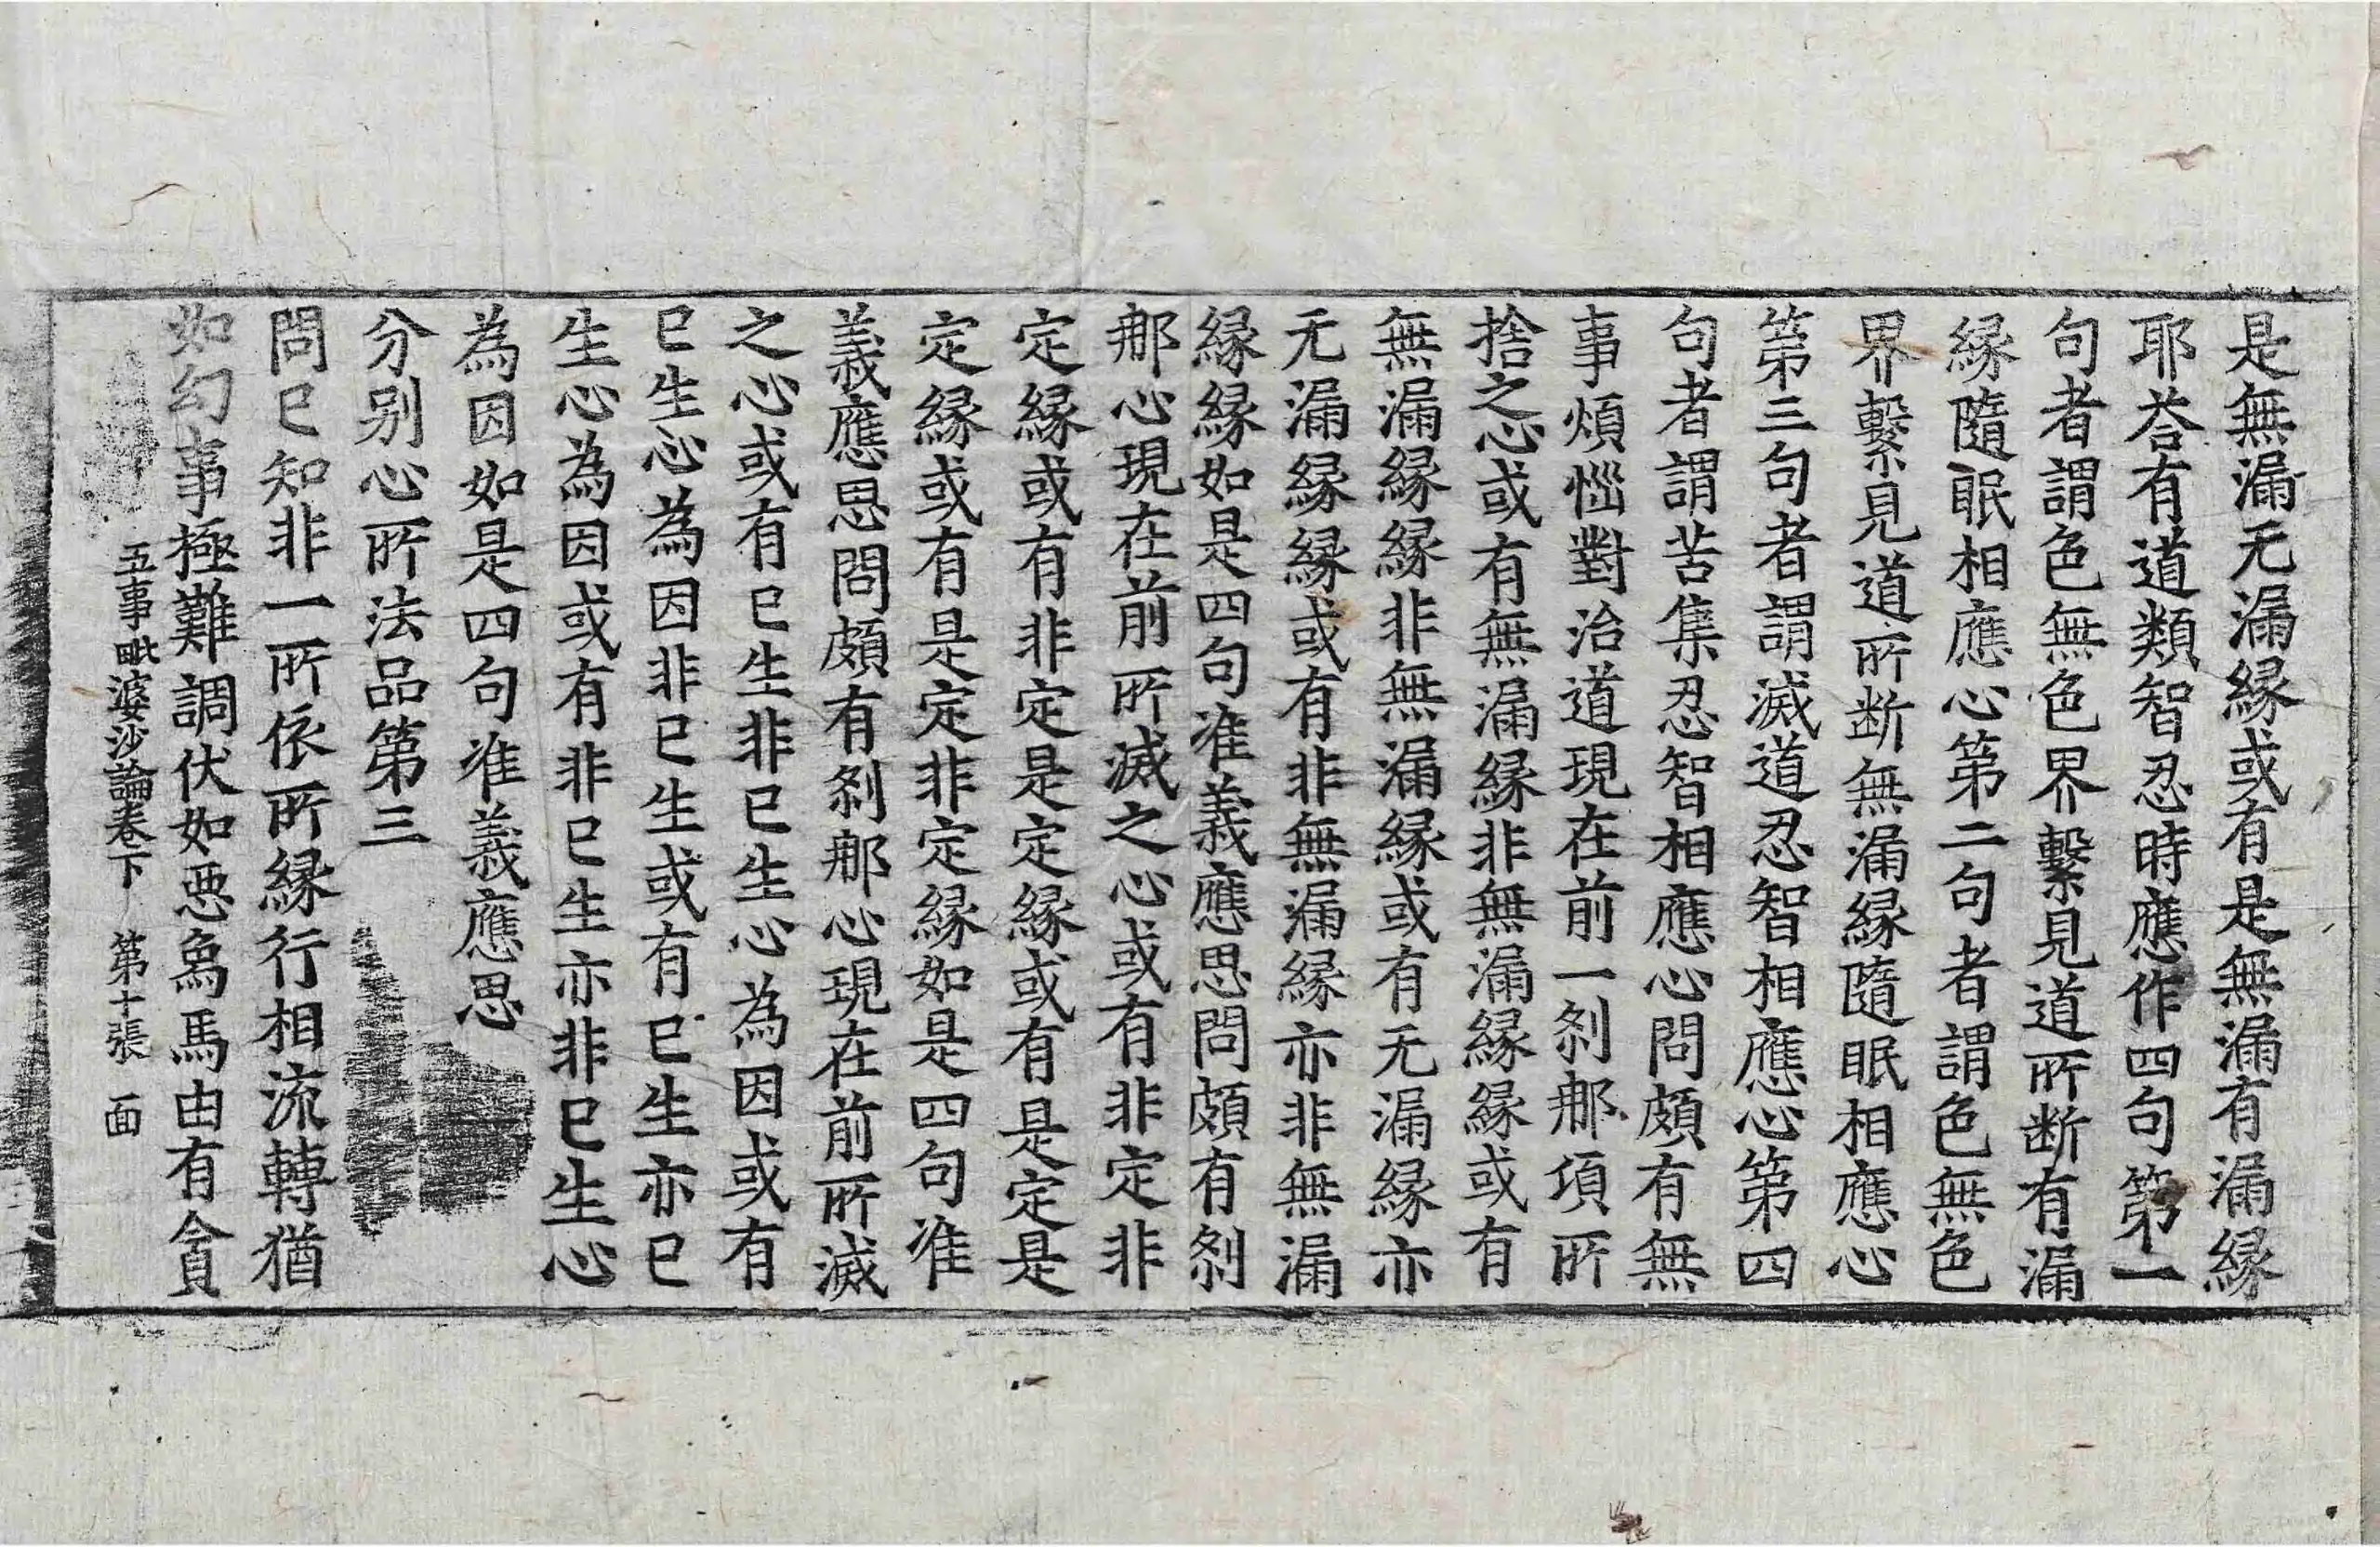 是無漏无漏縁或有是無漏有漏縁
耶荅有道類智忍時應作四句第一
句者謂色無色界繫見道所断有漏
縁隨眠相應心第二句者謂色無色
界繫見道所断無漏縁隨眠相應心
第三句者謂滅道忍智相應心第四
句者謂苦集忍智相應心問頗有無
事煩惱對治道現在前一剎那項所
捨之心或有無漏縁非無漏縁縁或有
無漏縁縁非無漏縁或有无漏縁亦
无漏縁縁或有非無漏縁亦非無漏
縁縁如是四句准義應思問頗有剎
那心現在前所滅之心或有非定非
定縁或有非定是定縁或有是定是
定縁或有是定非定縁如是四句准
義應思問頗有剎那心現在前所滅
之心或有已生非已生心為因或有
已生心為因非已生或有已生亦已
生心為因或有非已生亦非已生心
為因如是四句准義應思
分别心所法品第三
問已知非一所依所縁行相流轉猶
如幻事極難調伏如惡象馬由有貪
五事毗婆沙論卷下 第十張 面